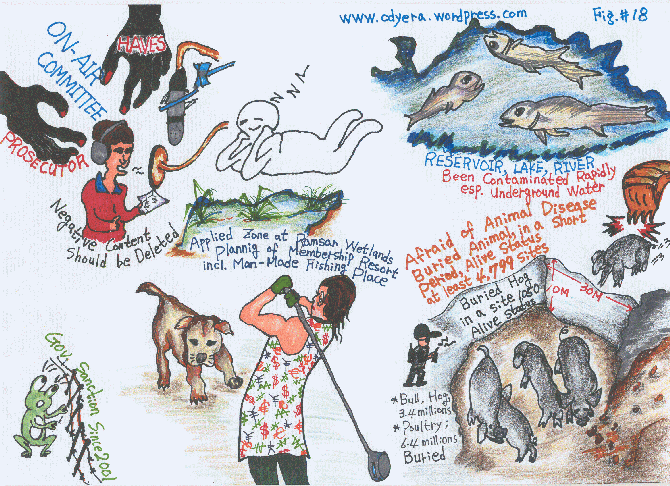 www.cdyera.wordpress.com
Fig.#18
ON-AIR
COMMITTEE
HAVES
PROSECUTOR
Negative Content
Should be Deleted
Applied Zone at Ramsar Wetlands
Plannig of Membership Resort
incl. Man-Made Fishing Place
RESERVOIR, LAKE, RIVER
Been Contaminated Rapidly
esp. Underground Water
Afraid of Animal Disease
Buried Animal, in a Short
Period, Alive Status
at least 4,799 sites
Buried Hog
in a site
Alive status
30M
Gov. Sanction Since 2001
* Bull, Hog;
3.4 millions
* Poultry;
6.4 millions
Buried